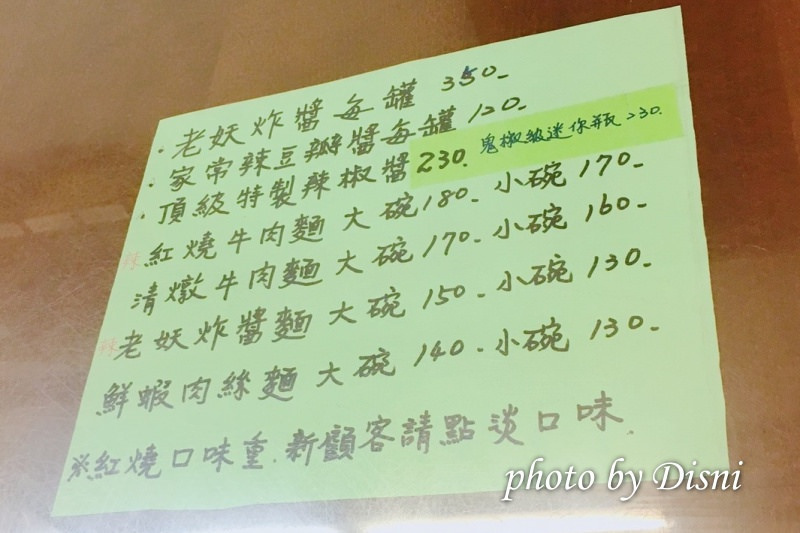 ·老妖炸醬每罐 350-
·家常辣豆瓣醬每罐 120-
·頂級特製辣椒醬 230. 鬼椒級迷你瓶 230.
辣紅燒牛肉麵大碗180-小碗170-
清燉牛肉麵大碗170-小碗160-
辣老妖炸醬麵大碗150-小碗130-
鮮蝦肉絲麵大碗140-小碗130-
※紅燒口味重.新顧客請點淡口味.
photo by Disni